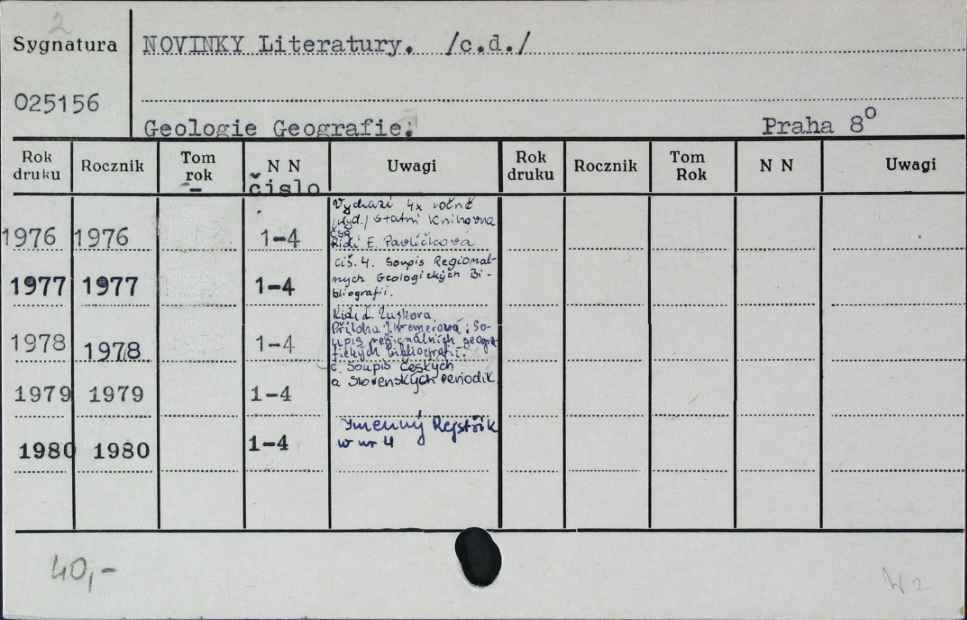 2
Sygnatura NOVINKY Literatury. /c.d./
025156
Geologie Geografie. Praha 8°
Rok druku Rocznik Tom rok N N Uwagi Rok druku Rocznik Tom Rok N N Uwagi
- číslo
Vychází 4x ročně
/vyd./ Statni Knihovna
1976 1976 1-4 řídí E. Pavlíčkova
čis. 4. Soupis Regional-
1977 1977 1-4 nych Geologických Bi-
bliografii.
Řídí L. Luskova
1978 1978 1-4 Příloha Kremerová: So-
upis regionálních geogra-
fických bibliografií.
č. Soupis českých
1979 1979 1-4 a slovenských periodik
Ymenný Rejstřík
1980 1980 1-4 w nr 4
40,-
W 2